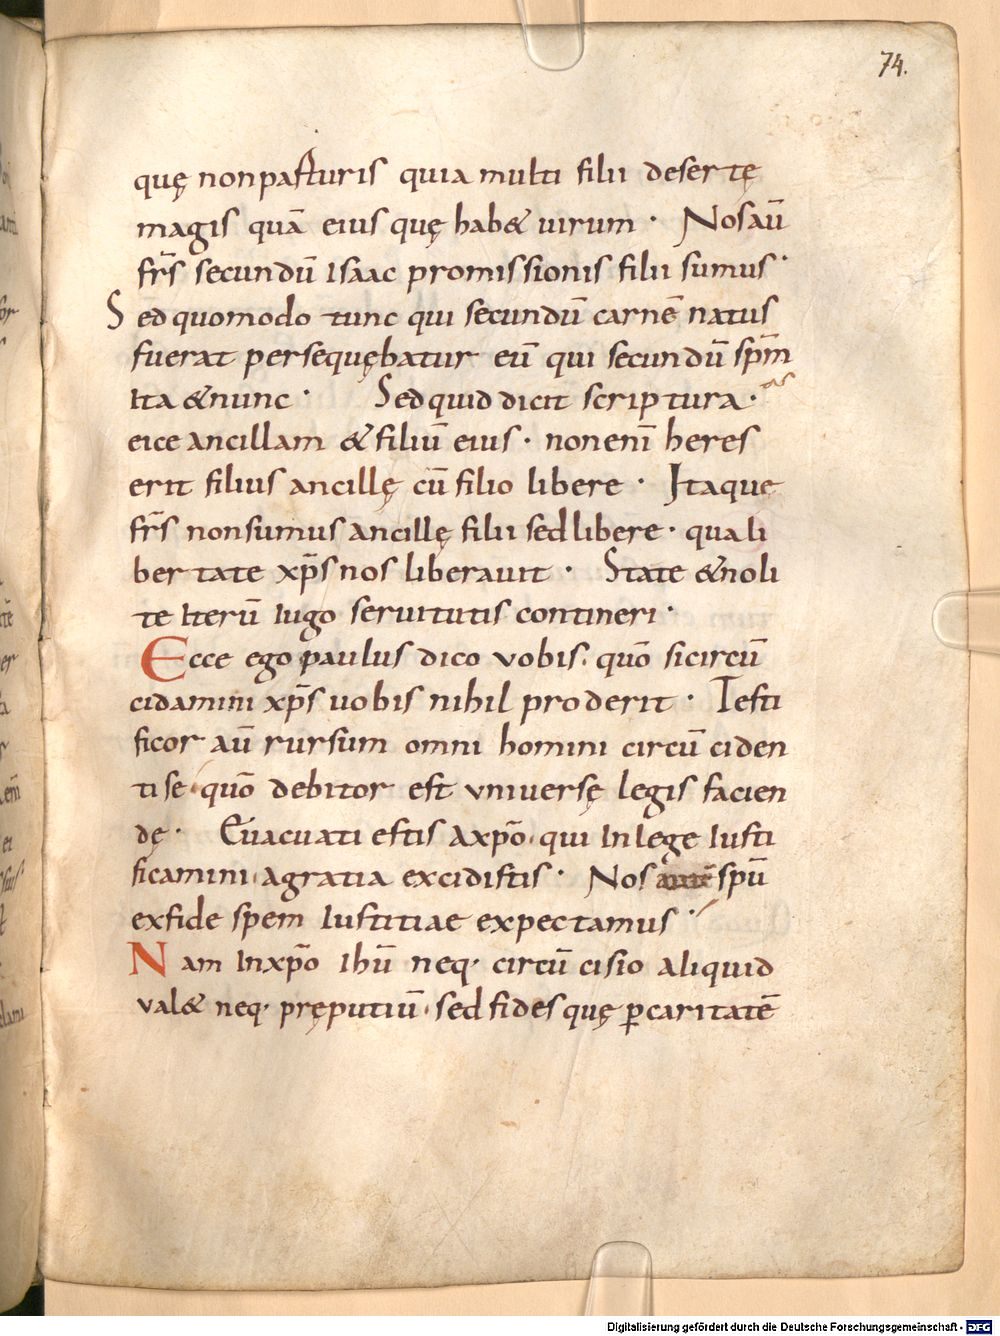 74.
quę nonparturis quia multi filii desertę
magis quā eius quę hab& uirum · Nos aū
fr̄s secundū isaac promissionis filii sumus ·
Sed quomodo tunc qui secundū carnē natus
fuerat persequębatur eū qui secundū sp̄m
ita &nunc · Sed quid dicit scriptura ·
eice ancillam & filiū eius · non enī heres
erit filius ancillę cū filio libere · Itaque
fr̄s non sumus ancillę filii sed libere · qua li
bertate xp̄s nos liberauit · State & noli
te iterū iugo seruitutis contineri ·
Ecce ego paulus dico vobis · quō si circū
cidamini xp̄s uobis nihil proderit · Testi
ficor aū rursum omni homini circū ciden
ti se · quō debitor est vniversę legis facien
dę · Euacuati estis axp̄o · qui in lege iusti
ficamini · agratia excidistis · Nos autē spū
exfide spem iustitiae expectamus ·
Nam inxp̄o ihū neq· circū cisio aliquid
val& neq· pręputiū · sed fides quę ꝑcaritatē
Digitalisierung gefördert durch die Deutsche Forschungsgemeinschaft - DFG